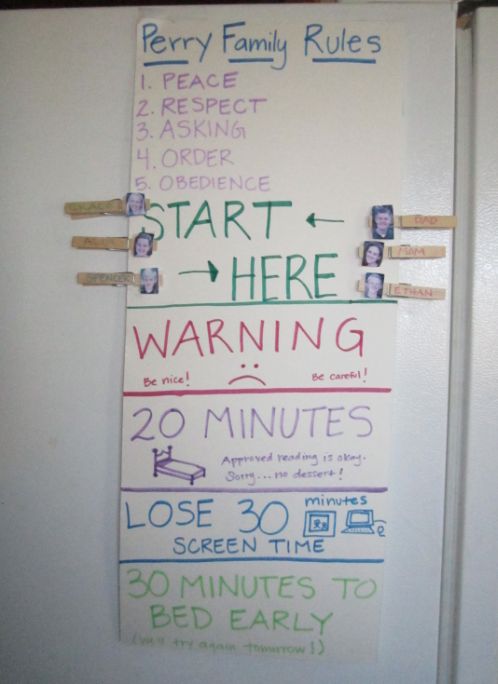 Perry Family Rules
1. PEACE
2. RESPECT
3. ASKING
4. ORDER
5. OBEDIENCE
START ←
→ HERE
DAD
MOM
SPENCER
ETHAN
WARNING
Be nice! Be careful!
20 MINUTES
Approved reading is okay.
Sorry... no dessert!
LOSE 30 minutes
SCREEN TIME
30 MINUTES TO
BED EARLY
(We'll try again tomorrow!)